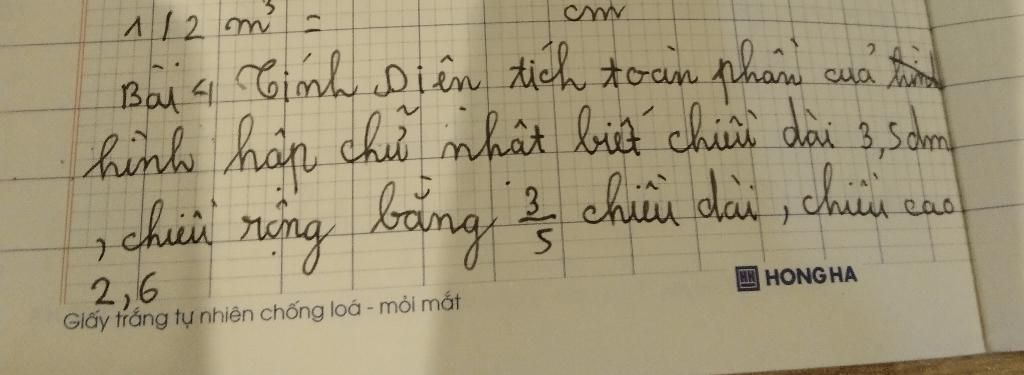 1/2 m³ = cm
Bài 4 Tính Diện tích toàn phần cuả hình
hình hộp chữ nhật biết chiều dài 3,5dm
, chiều rộng bằng 3/5 chiều dài, chiều cao
2,6
HONG HA
Giấy trắng tự nhiên chống loá - mỏi mắt